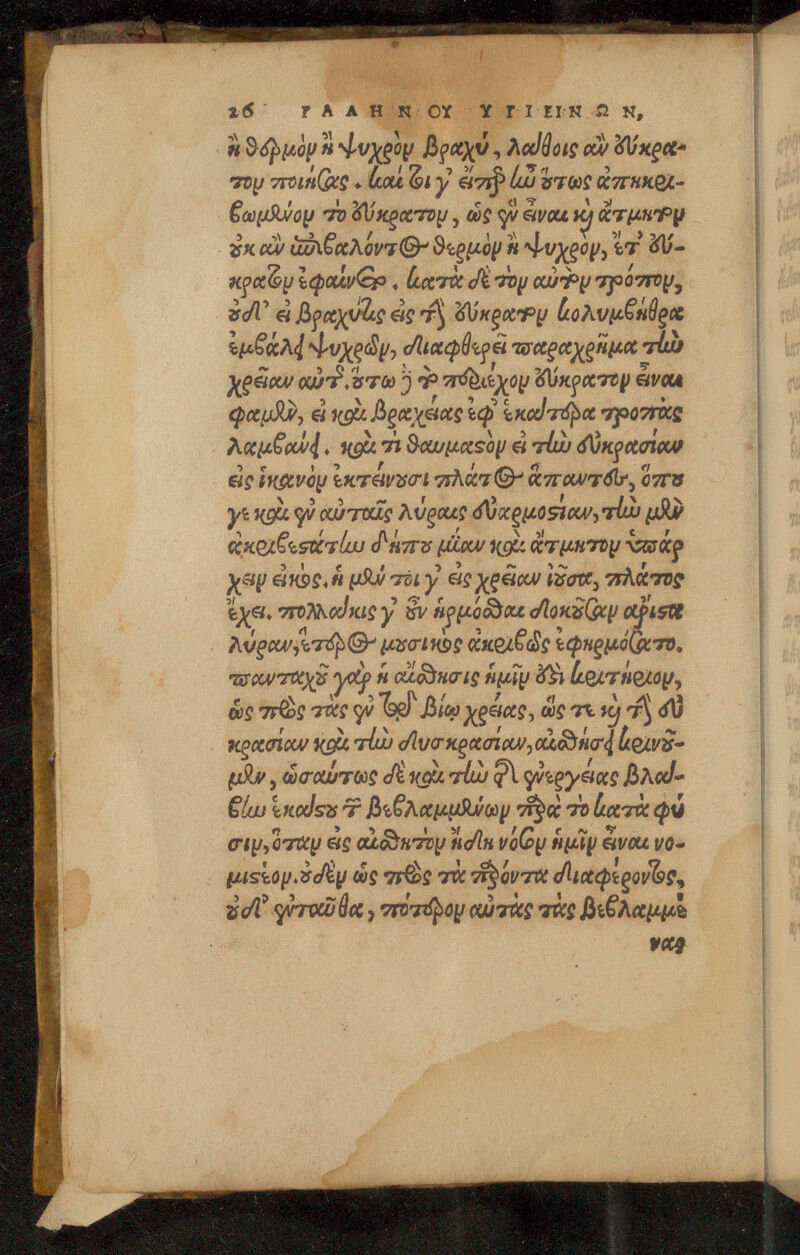 26 ΓΑΛΗΝΟΥ ΥΓΙΕΙΝΩΝ,
ἢ θερμὸν ἢ ψυχρὸν βραχὺ, λάθοις ἂν εὔκρα-
τον ποιήσας. καί τοι γ' εἴπερ ἦν ὅτως ἀπηκρι-
βωμένον τὸ εὔκρατον, ὡς ἓν εἶναι καὶ ἄτμητον
οὐκ ἂν ἐμβαλόντος θερμὸν ἢ ψυχρὸν, ἔτ' εὔ-
κρατον ἐφαίνετο. κατὰ δὲ τὸν αὐτὸν τρόπον,
οὐδ' εἰ βραχύ τις εἰς τὴν εὔκρατον κολυμβήθρα
ἐμβάλῃ ψυχρὸν, διαφθερεῖ παραχρῆμα τὴν
χρείαν αὐτῆς. οὕτω δὲ τὸ περιέχον εὔκρατον εἶναι
φαμὲν, εἰ καὶ βραχείας ἐφ' ἑκάτερα τροπὰς
λαμβάνῃ. καὶ τί θαυμαστὸν εἰ τὴν εὐκρασίαν
εἰς ἱκανὸν ἐκτείνουσι πλάτος ἅπαντες, ὅπου
γε καὶ ἐν αὐταῖς λύραις εὐαρμοστίαν, τὴν μὲν
ἀκριβεστάτην δήπου μίαν καὶ ἄτμητον ὑπάρ
χειν εἰκὸς, ἡ μέν τοι γ' εἰς χρείαν ἰοῦσα, πλάτος
ἔχει. πολλάκις γ' οὖν ἡρμόσθαι δοκοῦσαν ἄριστα
λύραν, ἕτερος μουσικὸς ἀκριβῶς ἐφηρμόσατο.
πανταχοῦ γὰρ ἡ αἴσθησις ἡμῖν ἐστὶ κριτήριον,
ὡς πρὸς τὰς ἐν τῷ βίῳ χρείας, ὥς τε καὶ τὴν εὐ
κρασίαν καὶ τὴν δυσκρασίαν, αἰσθήσει κρινοῦ-
μεν, ὡσαύτως δὲ καὶ τὴν τῆς ἐνεργείας βλά-
βην ἑκάστου τῶν βεβλαμμένων παρὰ τὸ κατὰ φύ
σιν, ὅταν εἰς αἰσθητὸν ἤδη νόσον ἡμῖν εἶναι νο-
μιστέον. οὐδὲν ὡς πρὸς τὰ παρόντα διαφέροντος,
οὐδ' ἐνταῦθα, πότερον αὐτὰς τὰς βεβλαμμέ
νας